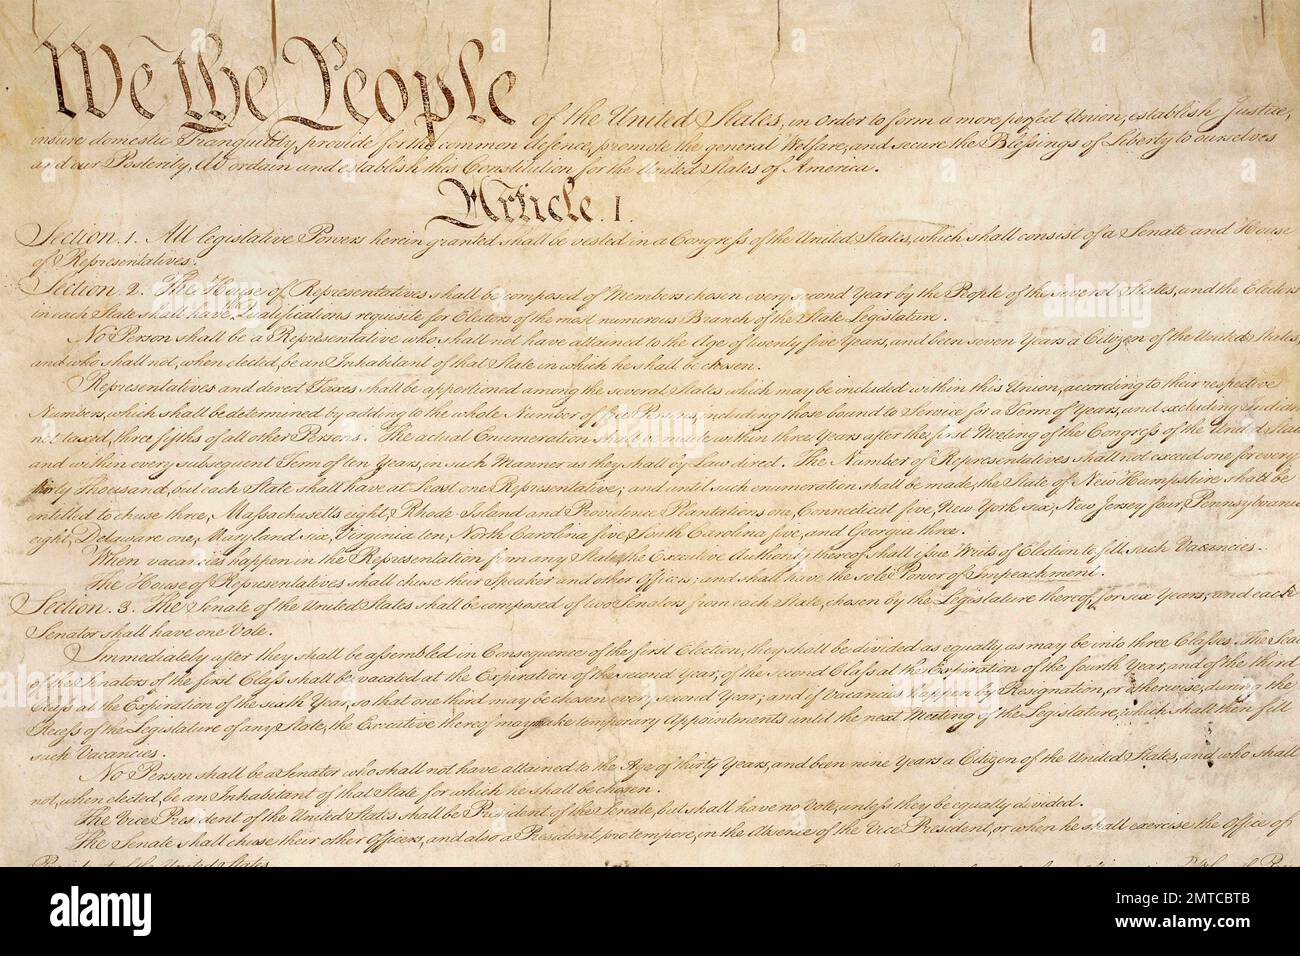 We the People of the United States, in Order to form a more perfect Union, establish Justice,
insure domestic Tranquility, provide for the common defence, promote the general Welfare, and secure the Blessings of Liberty to ourselves
and our Posterity, do ordain and establish this Constitution for the United States of America.
Article. I.
Section. 1. All legislative Powers herein granted shall be vested in a Congress of the United States, which shall consist of a Senate and House
of Representatives.
Section. 2. The House of Representatives shall be composed of Members chosen every second Year by the People of the several States, and the Electors
in each State shall have the Qualifications requisite for Electors of the most numerous Branch of the State Legislature.
No Person shall be a Representative who shall not have attained to the Age of twenty five Years, and been seven Years a Citizen of the United States,
and who shall not, when elected, be an Inhabitant of that State in which he shall be chosen.
Representatives and direct Taxes shall be apportioned among the several States which may be included within this Union, according to their respective
Numbers, which shall be determined by adding to the whole Number of free Persons, including those bound to Service for a Term of Years, and excluding Indians
not taxed, three fifths of all other Persons. The actual Enumeration shall be made within three Years after the first Meeting of the Congress of the United States,
and within every subsequent Term of ten Years, in such Manner as they shall by Law direct. The Number of Representatives shall not exceed one for every
thirty Thousand, but each State shall have at Least one Representative; and until such enumeration shall be made, the State of New Hampshire shall be
entitled to chuse three, Massachusetts eight, Rhode-Island and Providence Plantations one, Connecticut five, New-York six, New Jersey four, Pennsylvania
eight, Delaware one, Maryland six, Virginia ten, North Carolina five, South Carolina five, and Georgia three.
When vacancies happen in the Representation from any State, the Executive Authority thereof shall issue Writs of Election to fill such Vacancies.
The House of Representatives shall chuse their Speaker and other Officers; and shall have the sole Power of Impeachment.
Section. 3. The Senate of the United States shall be composed of two Senators from each State, chosen by the Legislature thereof, for six Years; and each
Senator shall have one Vote.
Immediately after they shall be assembled in Consequence of the first Election, they shall be divided as equally as may be into three Classes. The Seats
of the Senators of the first Class shall be vacated at the Expiration of the second Year, of the second Class at the Expiration of the fourth Year, and of the third
Class at the Expiration of the sixth Year, so that one third may be chosen every second Year; and if Vacancies happen by Resignation, or otherwise, during the
Recess of the Legislature of any State, the Executive thereof may make temporary Appointments until the next Meeting of the Legislature, which shall then fill
such Vacancies.
No Person shall be a Senator who shall not have attained to the Age of thirty Years, and been nine Years a Citizen of the United States, and who shall
not, when elected, be an Inhabitant of that State for which he shall be chosen.
The Vice President of the United States shall be President of the Senate, but shall have no Vote, unless they be equally divided.
The Senate shall chuse their other Officers, and also a President pro tempore, in the Absence of the Vice President, or when he shall exercise the Office of
President of the United States.
alamy
Image ID: 2MTCBTB
www.alamy.com